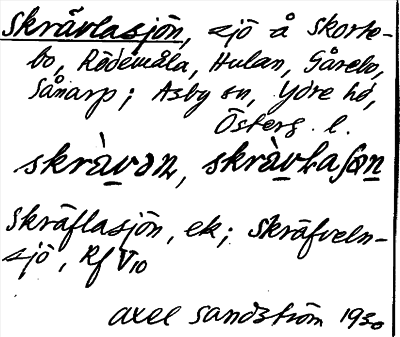 Skrävlasjön, sjö å Skorte-
bo, Rödemåla, Hulan, Gårebo,
Sånarp; Asby sn, Ydre hd,
Österg. l.
skràvən, skràvlaʃøn
Skräflasjön, ek; Skräfveln-
sjö, Rf V10
Axel Sandström 1930